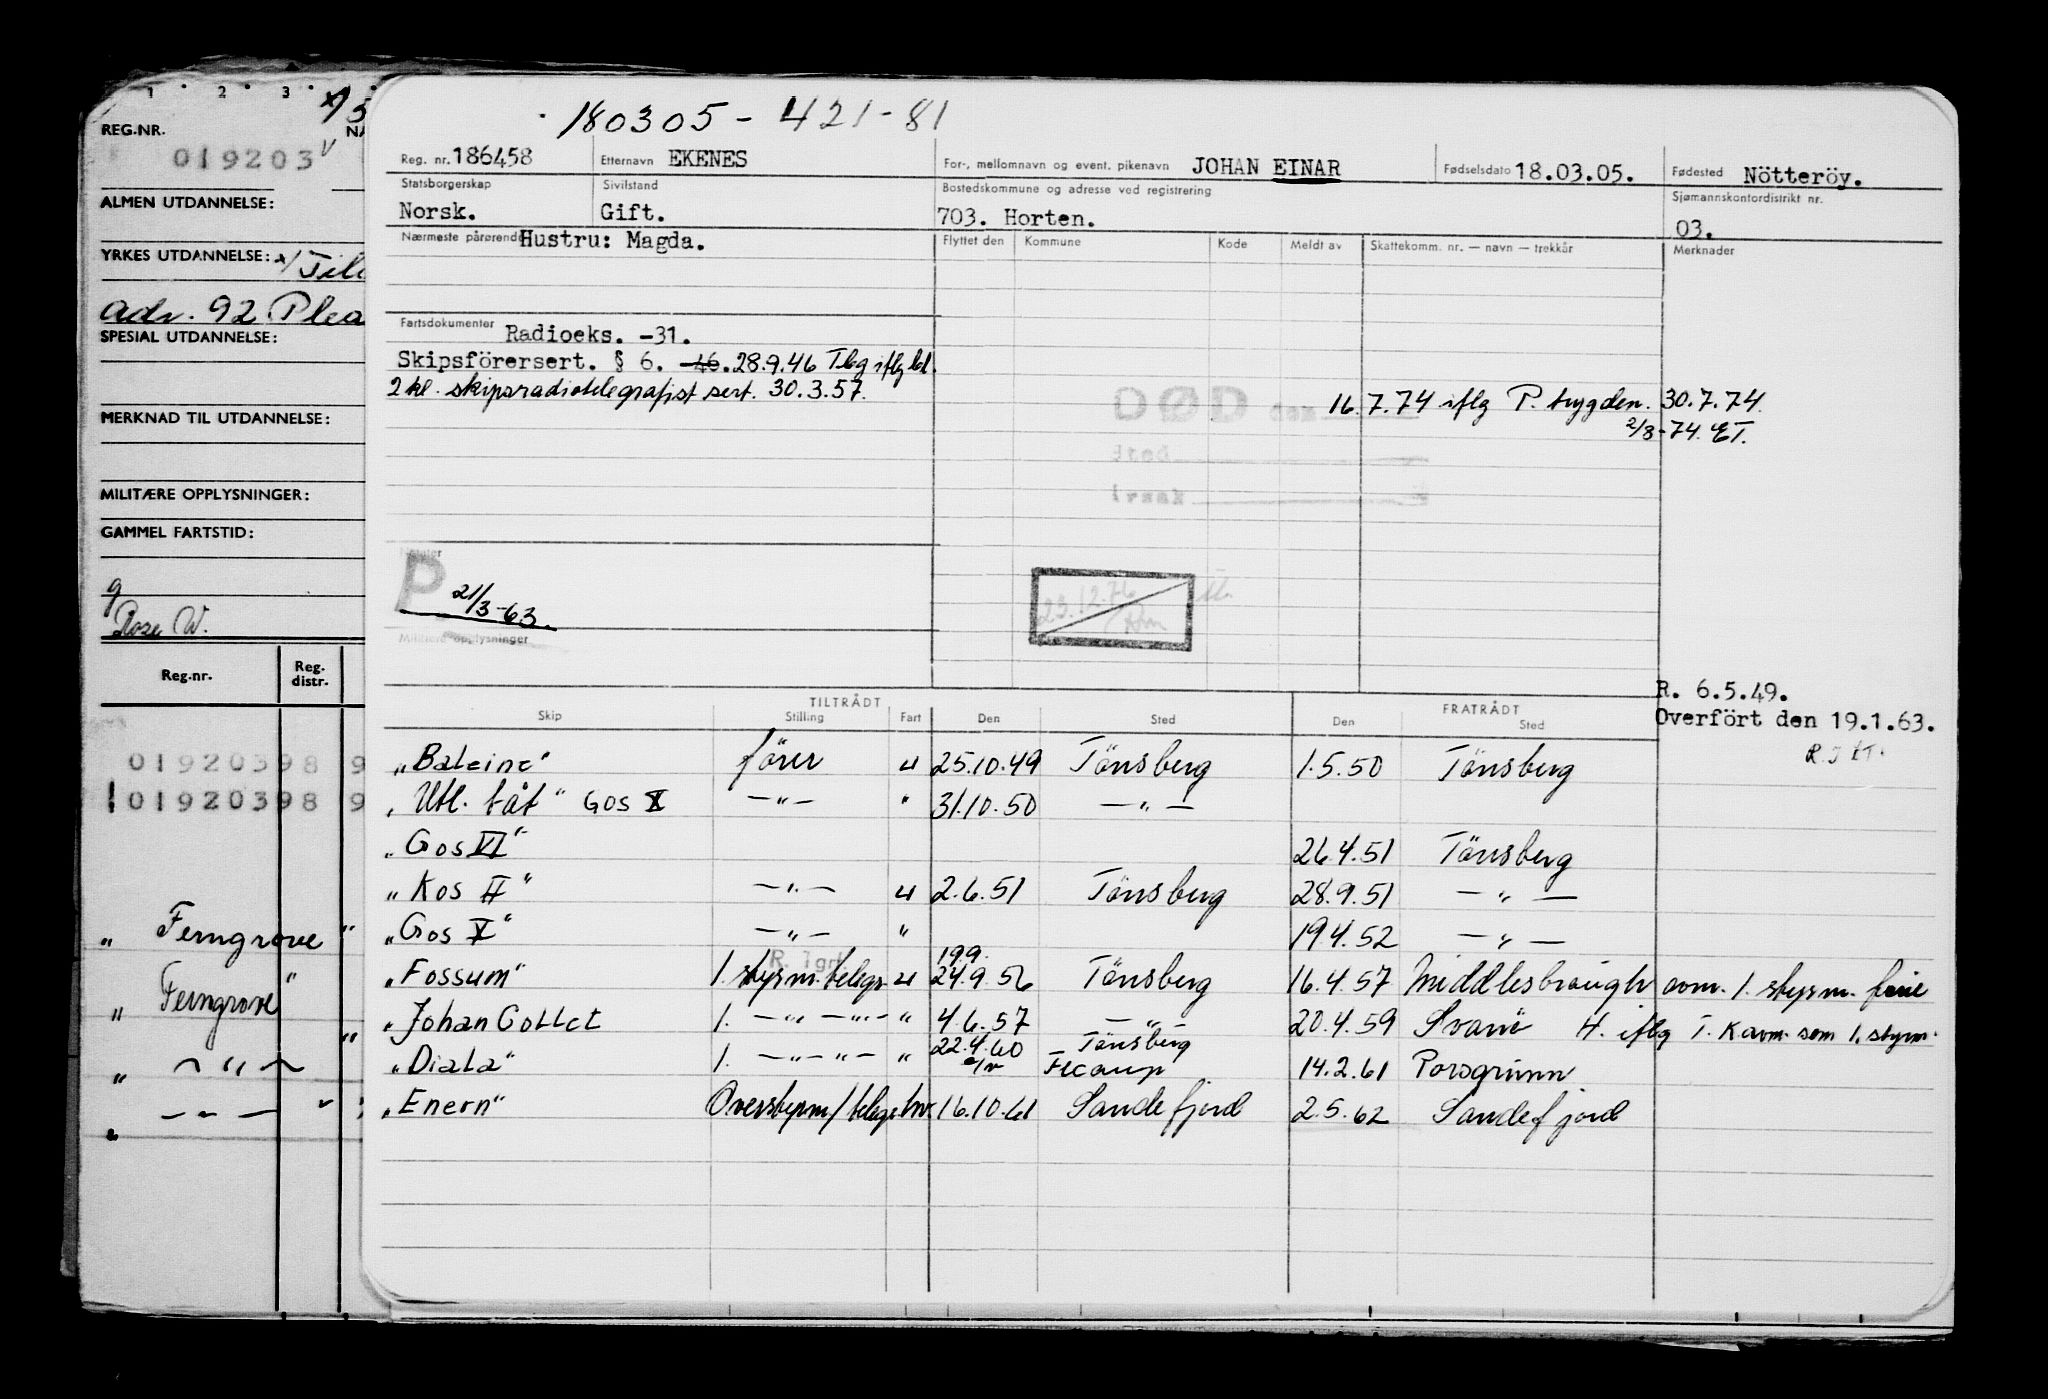 1 2 3
REG.NR.
019203
ALMEN UTDANNELSE:
YRKES UTDANNELSE:
adr. 92. Plea
SPESIAL UTDANNELSE:
MERKNAD TIL UTDANNELSE:
MILITÆRE OPPLYSNINGER:
GAMMEL FARTSTID:
Rose W.
Reg.nr. Reg. distr.
01920398 9
01920398 9
" Ferngrove "
" Ferngrove "
180305-421-81
Reg. nr. 186458 Etternavn EKENES For-, mellomnavn og event. pikenavn JOHAN EINAR Fødselsdato 18.03.05. Fødested Nötteröy.
Statsborgerskap Sivilstand Bostedskommune og adresse ved registrering Sjømannskontordistrikt nr.
Norsk. Gift. 703. Horten. 03.
Nærmeste pårørende Hustru: Magda. Flyttet den Kommune Kode Meldt av Skattekomm. nr. — navn — trekkår Merknader
Fartsdokumenter Radioeks. -31.
Skipsförersert. § 6. -46. 28.9.46 Tlg iflg bl.
2 kl. skipsradiotelegrafist sert. 30.3.57.
DØD den 16.7.74 iflg P. trygden. 30.7.74.
2/8-74. ET.
sted
årsak
P 21/3-63.
Militære opplysninger
23.12.76
R. 6.5.49.
Overfört den 19.1.63.
TILTRÅDT FRATRÅDT
Skip Stilling Fart Den Sted Den Sted
"Baleine" förer u 25.10.49 Tönsberg 1.5.50 Tönsberg
"Utl. båt" Gos X — " — " 31.10.50 — " —
"Gos VI" 26.4.51 Tönsberg
"Kos II" — " — u 2.6.51 Tönsberg 28.9.51 — " —
"Gos X" — " — " 19.4.52 — " —
19.9.
"Fossum" 1. styrm. telegr. u 24.9.56 Tönsberg 16.4.57 Middlesbrough avm. 1. styrm. ferie
"Johan Collet 1. — " — " — " 4.6.57 — " — 20.4.59 Svanö H. iflg T. K avm. som 1. styrm.
22.4.60 Tönsberg
"Diala" 1. — " — " — " Fecamp 14.2.61 Porsgrunn
"Enern" Overstyrm/telegr. 16.10.61 Sandefjord 2.5.62 Sandefjord